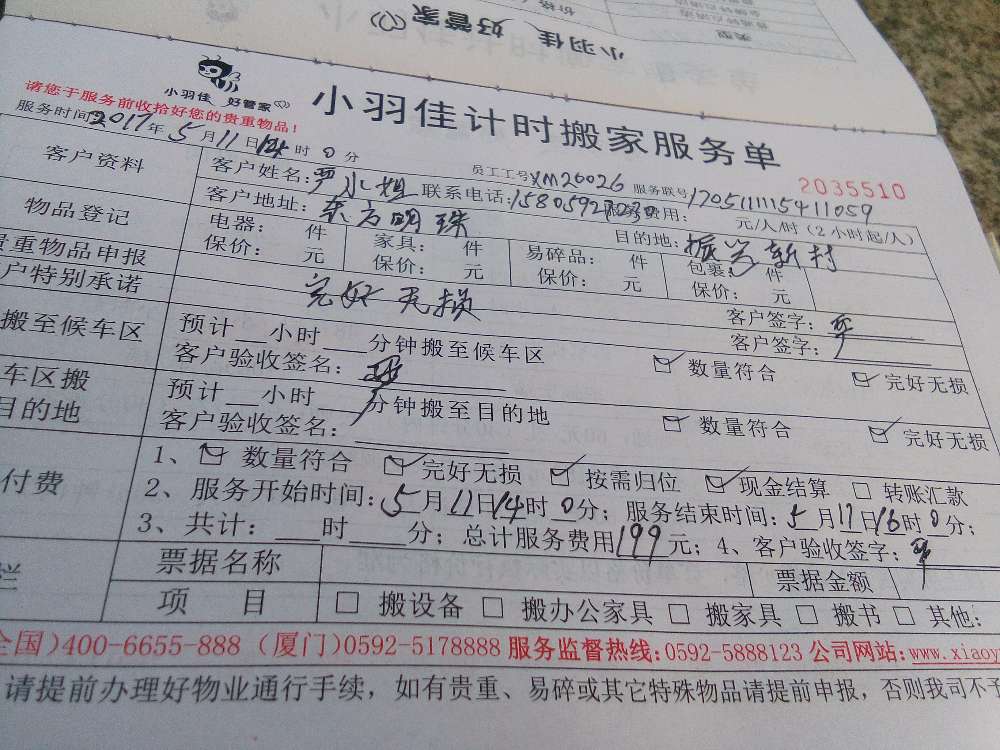 小羽佳 好管家
类型
小羽佳 好管家
小羽佳计时搬家服务单
2035510
请您于服务前收拾好您的贵重物品!
服务时间:2017年5月11日14时0分
员工工号XM20026 服务联号170511111541 1059
客户资料
客户姓名: 小姐 联系电话: 费用: 元/人/时(2小时起/人)
客户地址:东方明珠 目的地:振兴新村
物品登记
电器: 件 家具: 件 易碎品: 件 包裹: 件
保价: 元 保价: 元 保价: 元 保价: 元
贵重物品申报
客户签字:
户特别承诺 完好无损 客户签字:
搬至候车区
预计 小时 分钟搬至候车区 ☑ 数量符合 ☑ 完好无损
客户验收签名:
车区搬
目的地
预计 小时 分钟搬至目的地 ☑ 数量符合 ☑ 完好无损
客户验收签名:
付费
1、☑ 数量符合 ☑ 完好无损 ☑ 按需归位 ☑ 现金结算 □ 转账汇款
2、服务开始时间:5月11日14时0分;服务结束时间:5月11日16时0分;
3、共计: 时 分;总计服务费用199元;4、客户验收签字:
栏
票据名称 票据金额
项 目 □ 搬设备 □ 搬办公家具 □ 搬家具 □ 搬书 □ 其他:
全国)400-6655-888 (厦门)0592-5178888 服务监督热线:0592-5888123 公司网站:www.xiaoy
请提前办理好物业通行手续,如有贵重、易碎或其它特殊物品请提前申报,否则我司不予